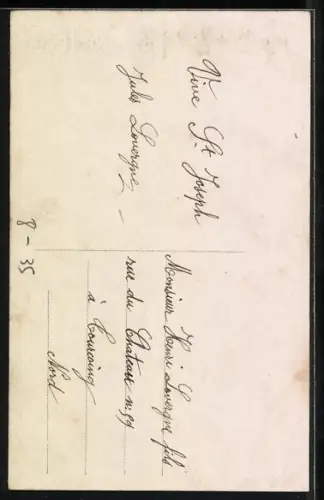 Vive St Joseph
Jules Lovergne
Monsieur Henri Lovergne fils
rue du Château n: 59
à Tourcoing
Nord
8-35